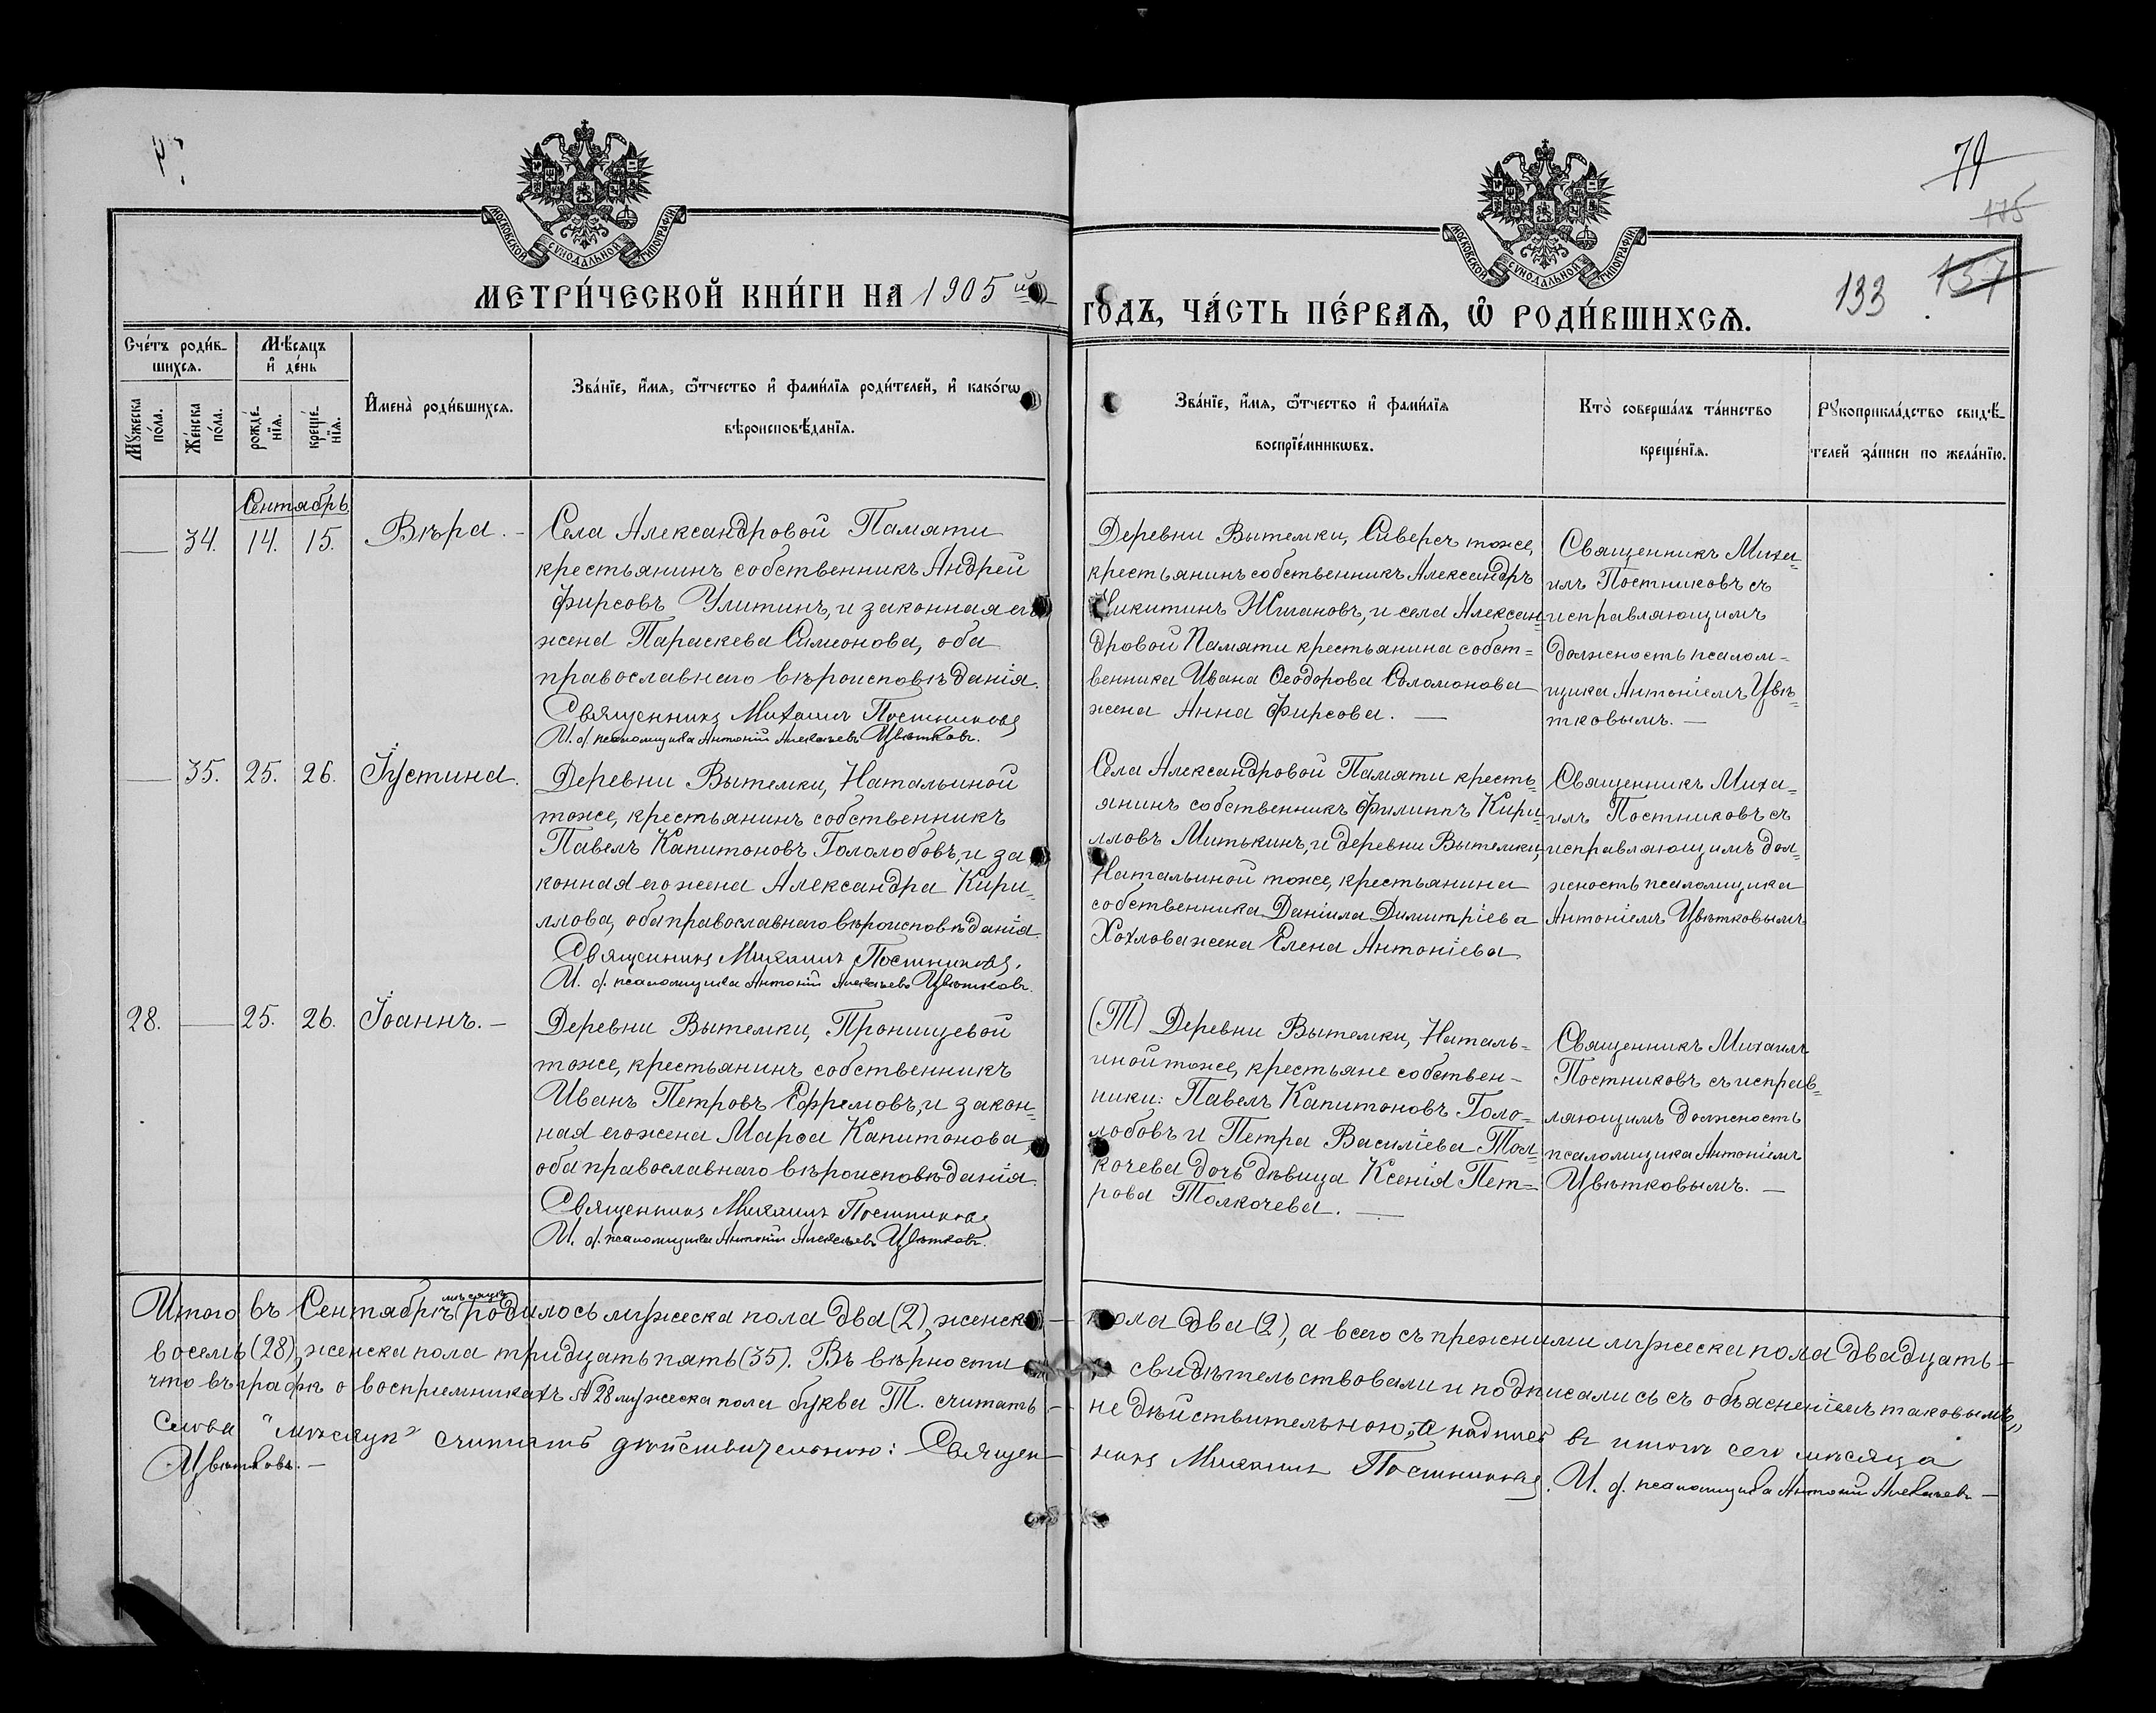 79
175
157
133
МОСКОВСКОЙ СУНОДАЛЬНОЙ ТИПОГРАФІИ
МОСКОВСКОЙ СУНОДАЛЬНОЙ ТИПОГРАФІИ
МЕТРИ́ЧЕСКОЙ КНИ́ГИ НА 1905й
ГОДЪ, ЧА́СТЬ ПЕ́РВАѦ, Ѡ҆ РОДИ́ВШИХСѦ.
Сче́тъ роди́в-
шихсѧ.
Мѣ́сѧцъ
и҆ де́нь
Мꙋ́жеска
по́ла.
Же́нска
по́ла.
рожде́-
нїѧ.
креще́-
нїѧ.
И҆мена̀ роди́вшихсѧ.
Зва́нїе, и҆́мѧ, ѻ҆́тчество и҆ фами́лїѧ роди́телей, и҆ како́гѡ
вѣроисповѣ́данїѧ.
Зва́нїе, и҆́мѧ, ѻ҆́тчество и҆ фами́лїѧ
воспрїе́мникѡвъ.
Кто̀ соверша́лъ та́инство
креще́нїѧ.
Рꙋкоприкла́дство свидѣ́-
телей за́писи по жела́нїю.
Сентябрь
— 34. 14. 15. Вѣра. —
Села Александровой Памяти
крестьянинъ собственникъ Андрей
Фирсовъ Улитинъ, и законная его
жена Параскева Симеонова, оба
православнаго вѣроисповѣданія.
Священникъ Михаилъ Постниковъ
И. д. псаломщика Антоній Алексѣевъ Цвѣтковъ.
Деревни Вытемки, Сиверсъ тоже,
крестьянинъ собственникъ Александръ
Никитинъ Жмановъ, и села Алексан-
дровой Памяти крестьянина собст=
венника Ивана Ѳеодорова Соломонова
жена Анна Фирсова. —
Священникъ Миха-
илъ Постниковъ съ
исправляющимъ
должность псалом-
щика Антоніемъ Цвѣ-
тковымъ. —
— 35. 25. 26. Іустина.
Деревни Вытемки, Натальиной
тоже, крестьянинъ собственникъ
Павелъ Капитоновъ Гололобовъ, и за
конная его жена Александра Кири-
ллова, оба православнаго вѣроисповѣданія.
Священникъ Михаилъ Постниковъ.
И. д. псаломщика Антоній Алексѣевъ Цвѣтковъ.
Села Александровой Памяти кресть-
янинъ собственникъ Филиппъ Кири-
лловъ Митькинъ, и деревни Вытемки,
Натальиной тоже, крестьянина
собственника Даніила Димитріева
Хохлова жена Елена Антоніева
Священникъ Миха-
илъ Постниковъ съ
исправляющимъ дол-
жность псаломщика
Антоніемъ Цвѣтковымъ
28. — 25. 26. Іоаннъ. —
Деревни Вытемки, Пронищевой
тоже, крестьянинъ собственникъ
Иванъ Петровъ Ефремовъ, и закон-
ная его жена Марѳа Капитонова,
оба православнаго вѣроисповѣданія.
Священникъ Михаилъ Постниковъ
И. д. псаломщика Антоній Алексѣевъ Цвѣтковъ.
(Т) Деревни Вытемки, Наталь-
иной тоже, крестьяне собствен-
ники: Павелъ Капитоновъ Голо-
лобовъ и Петра Василіева Тол-
кочева дочь дѣвица Ксенія Пет-
рова Толкочева. —
Священникъ Михаилъ
Постниковъ съ исправ-
ляющимъ должность
псаломщика Антоніемъ
Цвѣтковымъ. —
Итого въ Сентябрѣ мѣсяцѣ родилось мужеска пола два (2), женска — пола два (2), а всего съ прежними мужеска пола двадцать —
восемь (28), женска пола тридцать пять (35). Въ вѣрности свидѣтельствовали и подписались съ объясненіемъ таковымъ,
что въ графѣ о воспріемникахъ № 28 мужеска пола буква Т. считать — не дѣйствительною, а надпись въ итогѣ сего мѣсяца
слова "мѣсяцѣ" считать дѣйствительною: Священ- никъ Михаилъ Постниковъ. И. д. псаломщика Антоній Алексѣевъ —
Цвѣтковъ. —